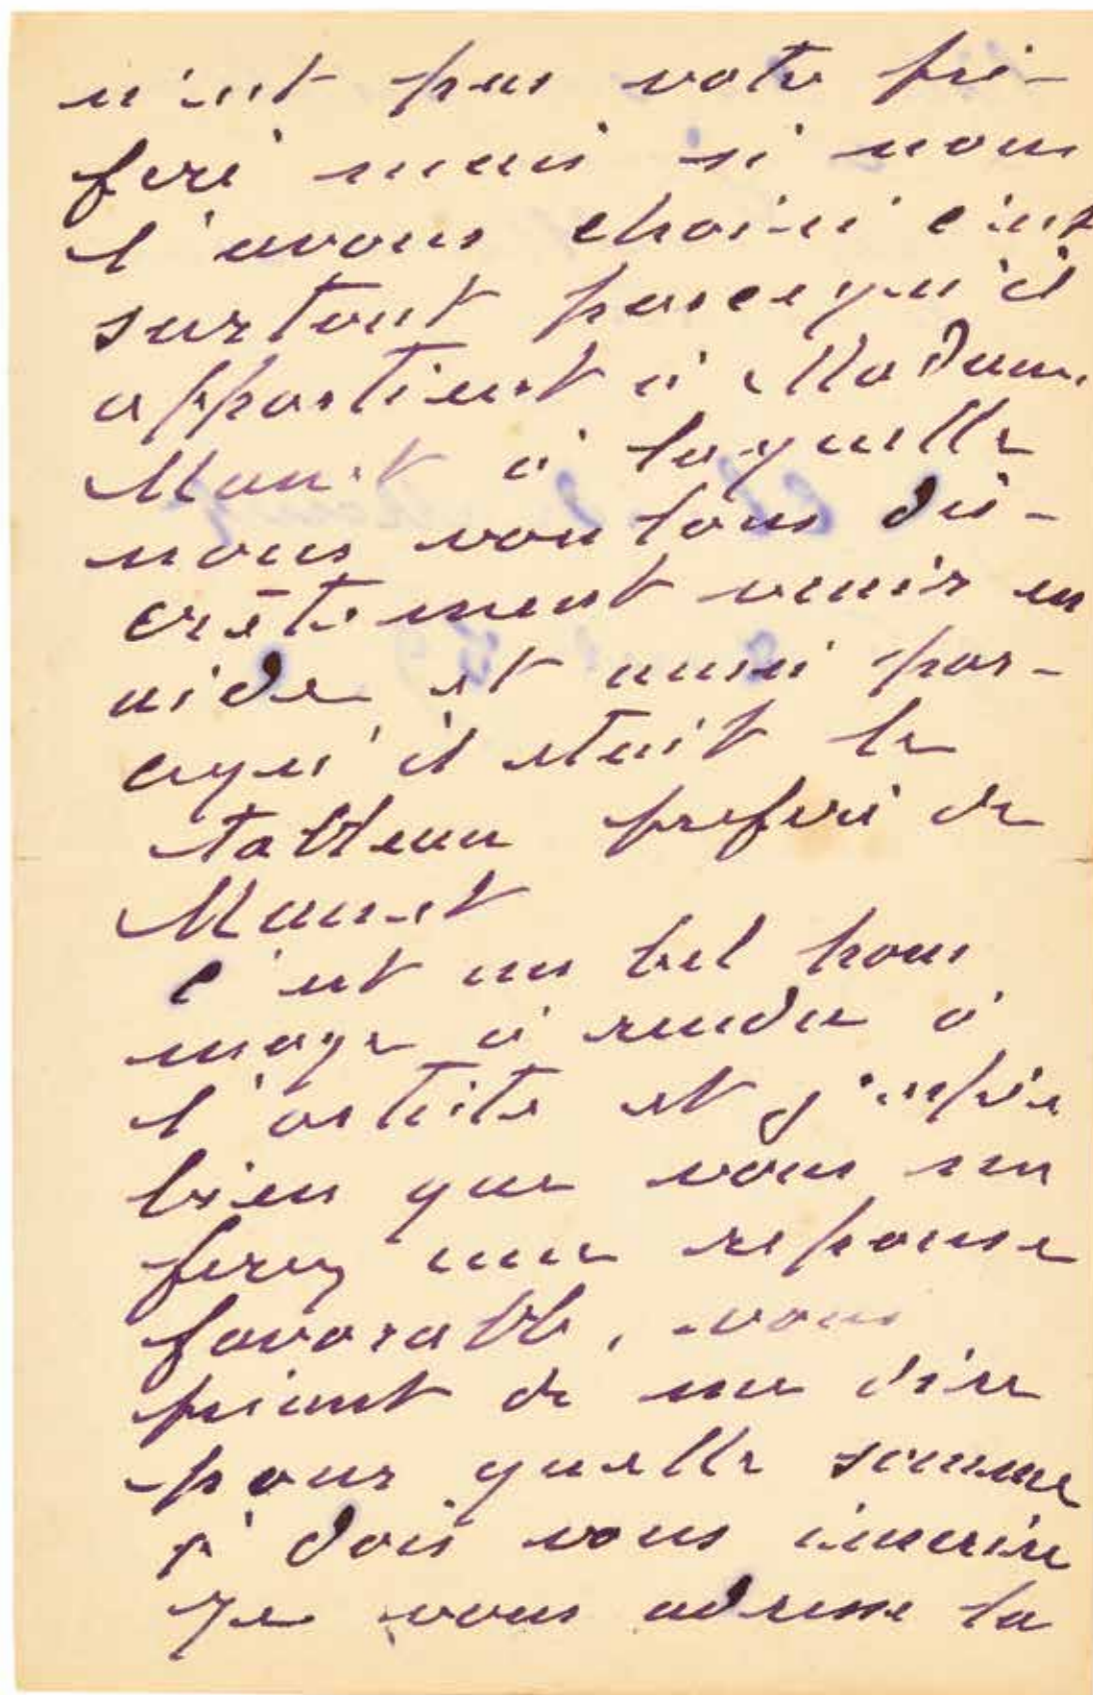 n'est pas votre pré-
feré mais si nous
l'avons choisi c'est
surtout parcequ'il
appartient à Madame
Manet à laquelle
nous voulons dis-
crètement venir en
aide et aussi par-
cequ'il était le
tableau preferé de
Manet
c'est un bel hom
mage à rendre à
l'artiste et j'espère
bien que vous me
ferez une reponse
favorable, vous
priant de me dire
pour quelle somme
je dois vous inscrire
Je vous adresse la